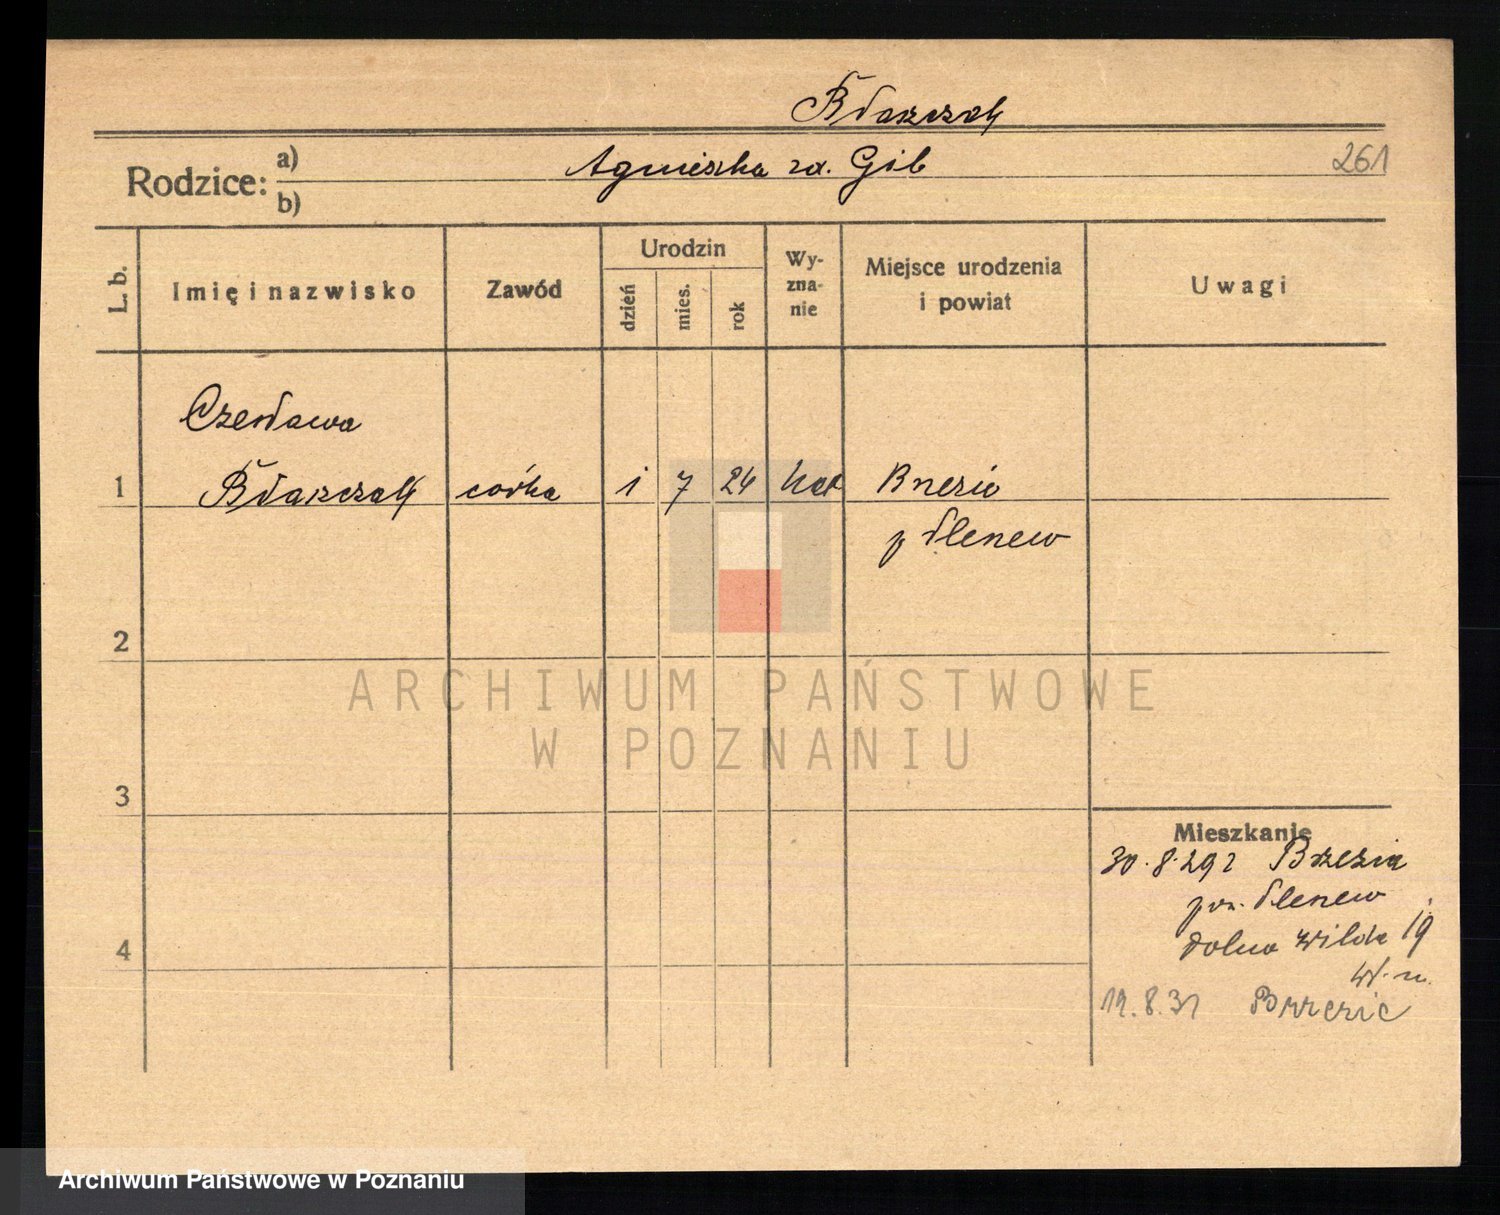 Błaszczak
Rodzice: a) Agnieszka zd. Gil
b)
261
L. b.
Imię i nazwisko
Zawód
Urodzin
dzień
mies.
rok
Wy-
zna-
nie
Miejsce urodzenia
i powiat
Uwagi
Czesława
1 Błaszczak córka 1 7 24 kat
2
3
4
Mieszkanie
30.8.29
Dolna Wilda 19
19.8.31
ARCHIWUM PAŃSTWOWE
W POZNANIU
Archiwum Państwowe w Poznaniu